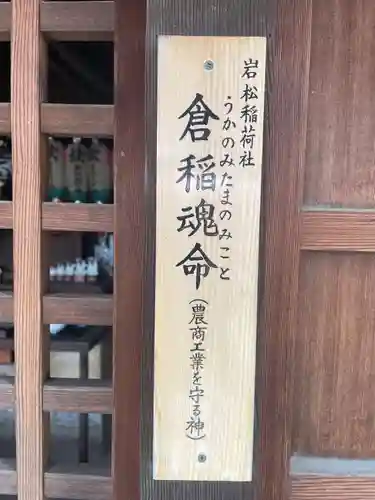 岩松稲荷社
うかのみたまのみこと
倉稲魂命
（農商工業を守る神）